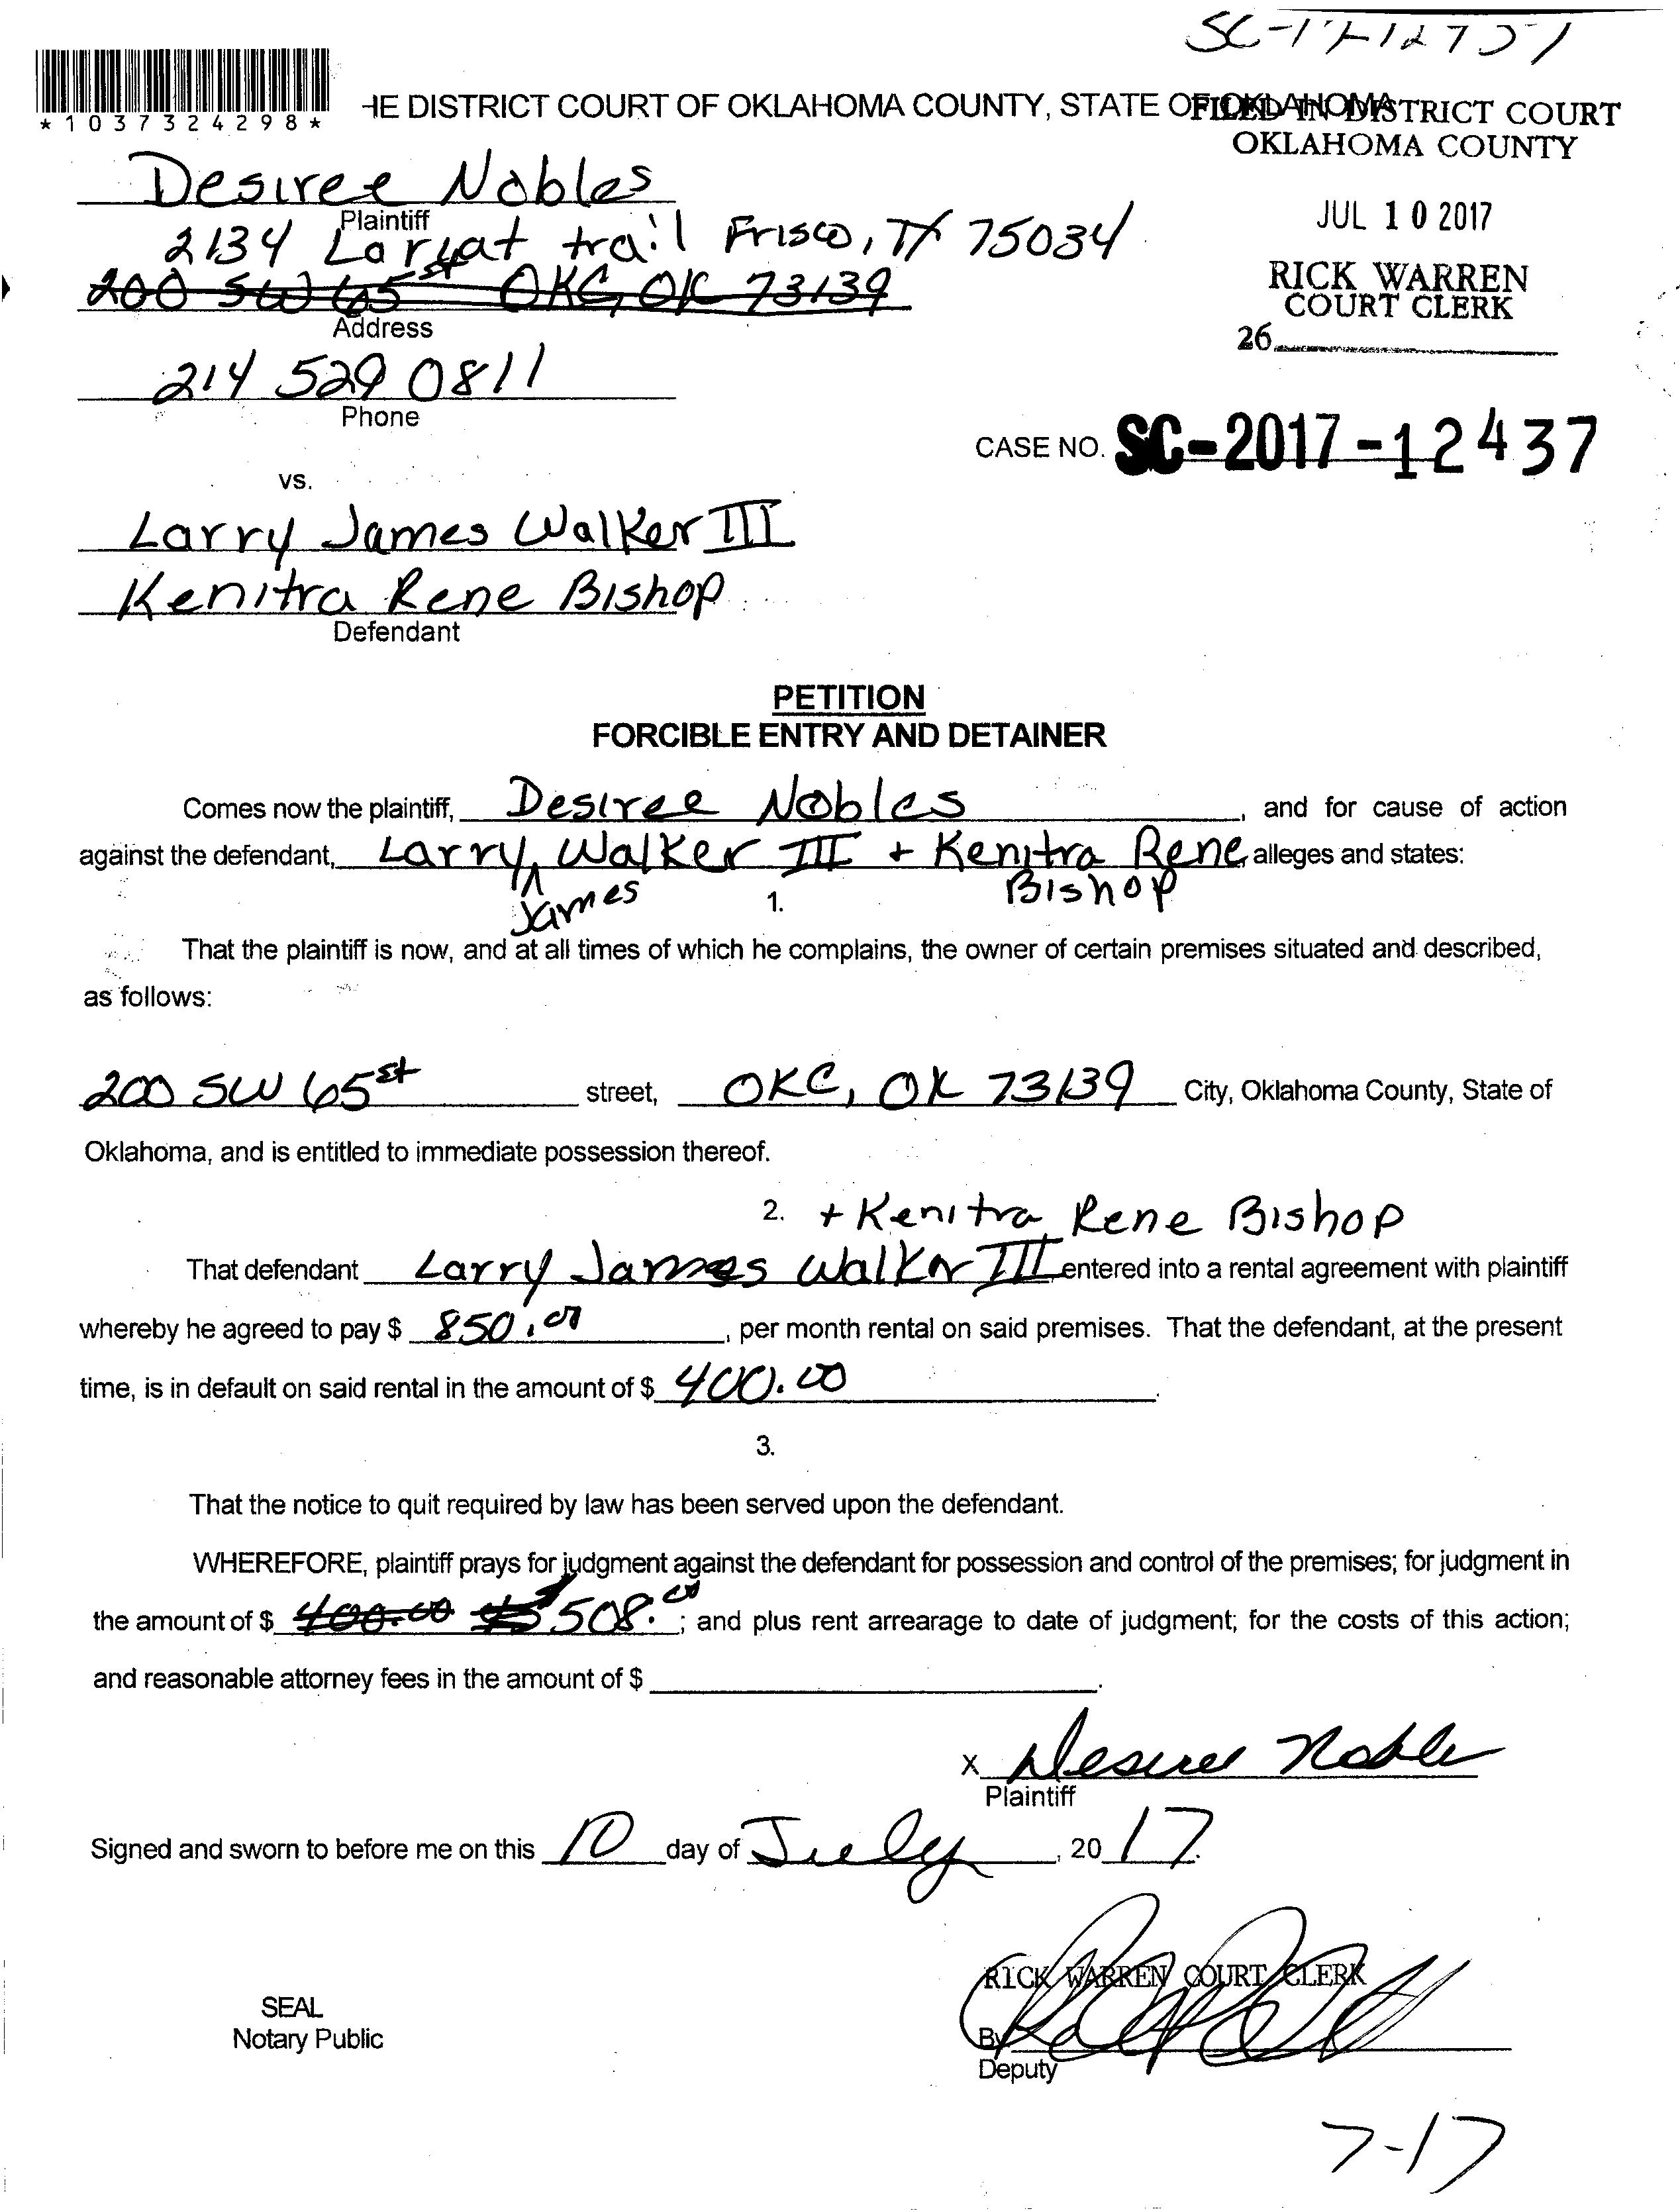 * 1 0 3 7 3 2 4 2 9 8 *
HE DISTRICT COURT OF OKLAHOMA COUNTY, STATE OF OKLAHOMA
FILED IN DISTRICT COURT
OKLAHOMA COUNTY
JUL 10 2017
RICK WARREN
COURT CLERK
26
Desiree Nobles
Plaintiff
2134 Lariat trail Frisco, TX 75034
200 SW 65st OKC, OK 73139
Address
214 529 0811
Phone
CASE NO. SC-2017-12437
vs.
Larry James Walker III
Kenitra Rene Bishop
Defendant
PETITION
FORCIBLE ENTRY AND DETAINER
Comes now the plaintiff, Desiree Nobles, and for cause of action
against the defendant, Larry James Walker III + Kenitra Rene Bishop alleges and states:
1.
That the plaintiff is now, and at all times of which he complains, the owner of certain premises situated and described,
as follows:
200 SW 65st street, OKC, OK 73139 City, Oklahoma County, State of
Oklahoma, and is entitled to immediate possession thereof.
2. + Kenitra Rene Bishop
That defendant Larry James Walker III entered into a rental agreement with plaintiff
whereby he agreed to pay $ 850.00, per month rental on said premises. That the defendant, at the present
time, is in default on said rental in the amount of $ 400.00.
3.
That the notice to quit required by law has been served upon the defendant.
WHEREFORE, plaintiff prays for judgment against the defendant for possession and control of the premises; for judgment in
the amount of $ 400.00 508.00; and plus rent arrearage to date of judgment; for the costs of this action;
and reasonable attorney fees in the amount of $ .
X Desiree Nobles
Plaintiff
Signed and sworn to before me on this 10 day of July, 20 17.
RICK WARREN COURT CLERK
SEAL
Notary Public
By
Deputy
7-17